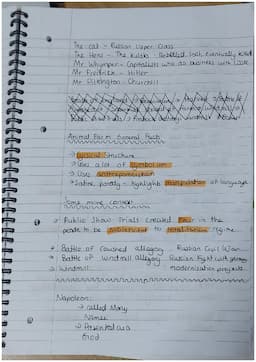 The cat - Russian Upper Class
The Hens - The Kulaks - Rebelled but eventually killed
Mr Whymper - Capitalists who do business with USSR
Mr Fredrick - Hitler
Mr Pilkington - Churchill
Animal Farm General Facts
→ Cyclical Structure
→ Uses a lot of symbolism
→ Uses anthropomorphism
→ Satire, parody - highlights manipulation of language
Some more context
→ Public Show Trials created fear in the
people to be subservient to totalitarian regime.
→ Battle of Cowshed allegory Russian Civil War
→ Battle of Windmill allegory Russian Fight with germany
→ Windmill modernisation programme
Napoleon:
→ called Many
Names
→ Presented as a
God